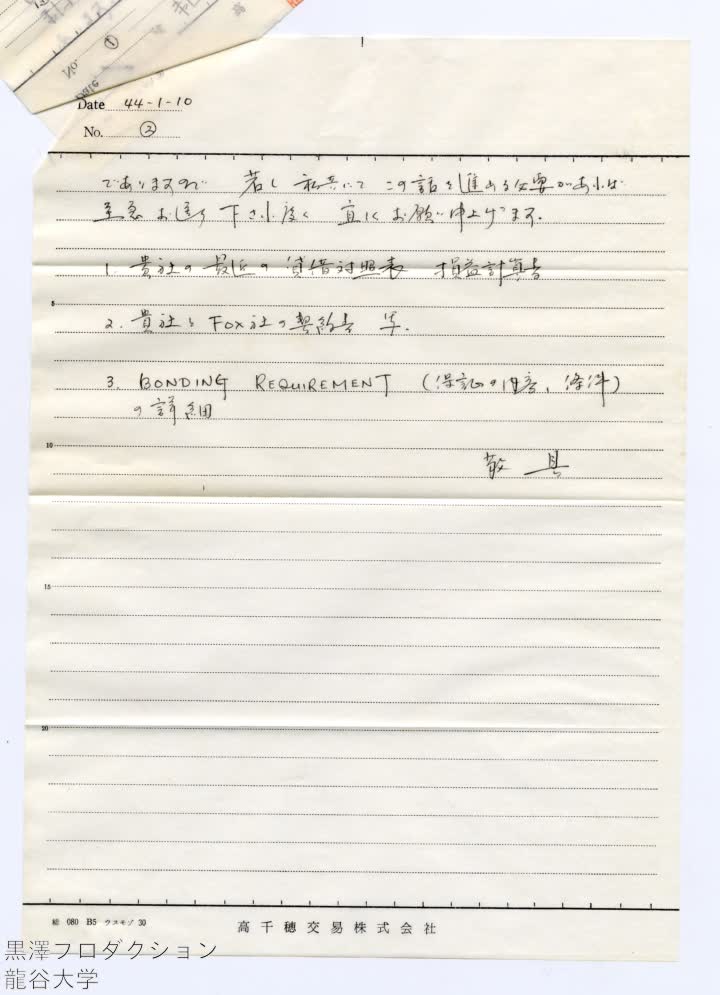 No. ①
Date
Date 44-1-10
No. ③
でありますので 若し 私共にて この話を進める必要があれば
至急 お送り 下され度く 宜しくお願い申上げます.
1. 貴社の最近の貸借対照表 損益計算書
5
2. 貴社とFOX社の契約書 写.
3. BONDING REQUIREMENT (保証の内容、条件)
の詳細
10
敬具
15
20
080 B5 ウスモゾ 30
高千穂交易株式会社
黒澤プロダクション
龍谷大学